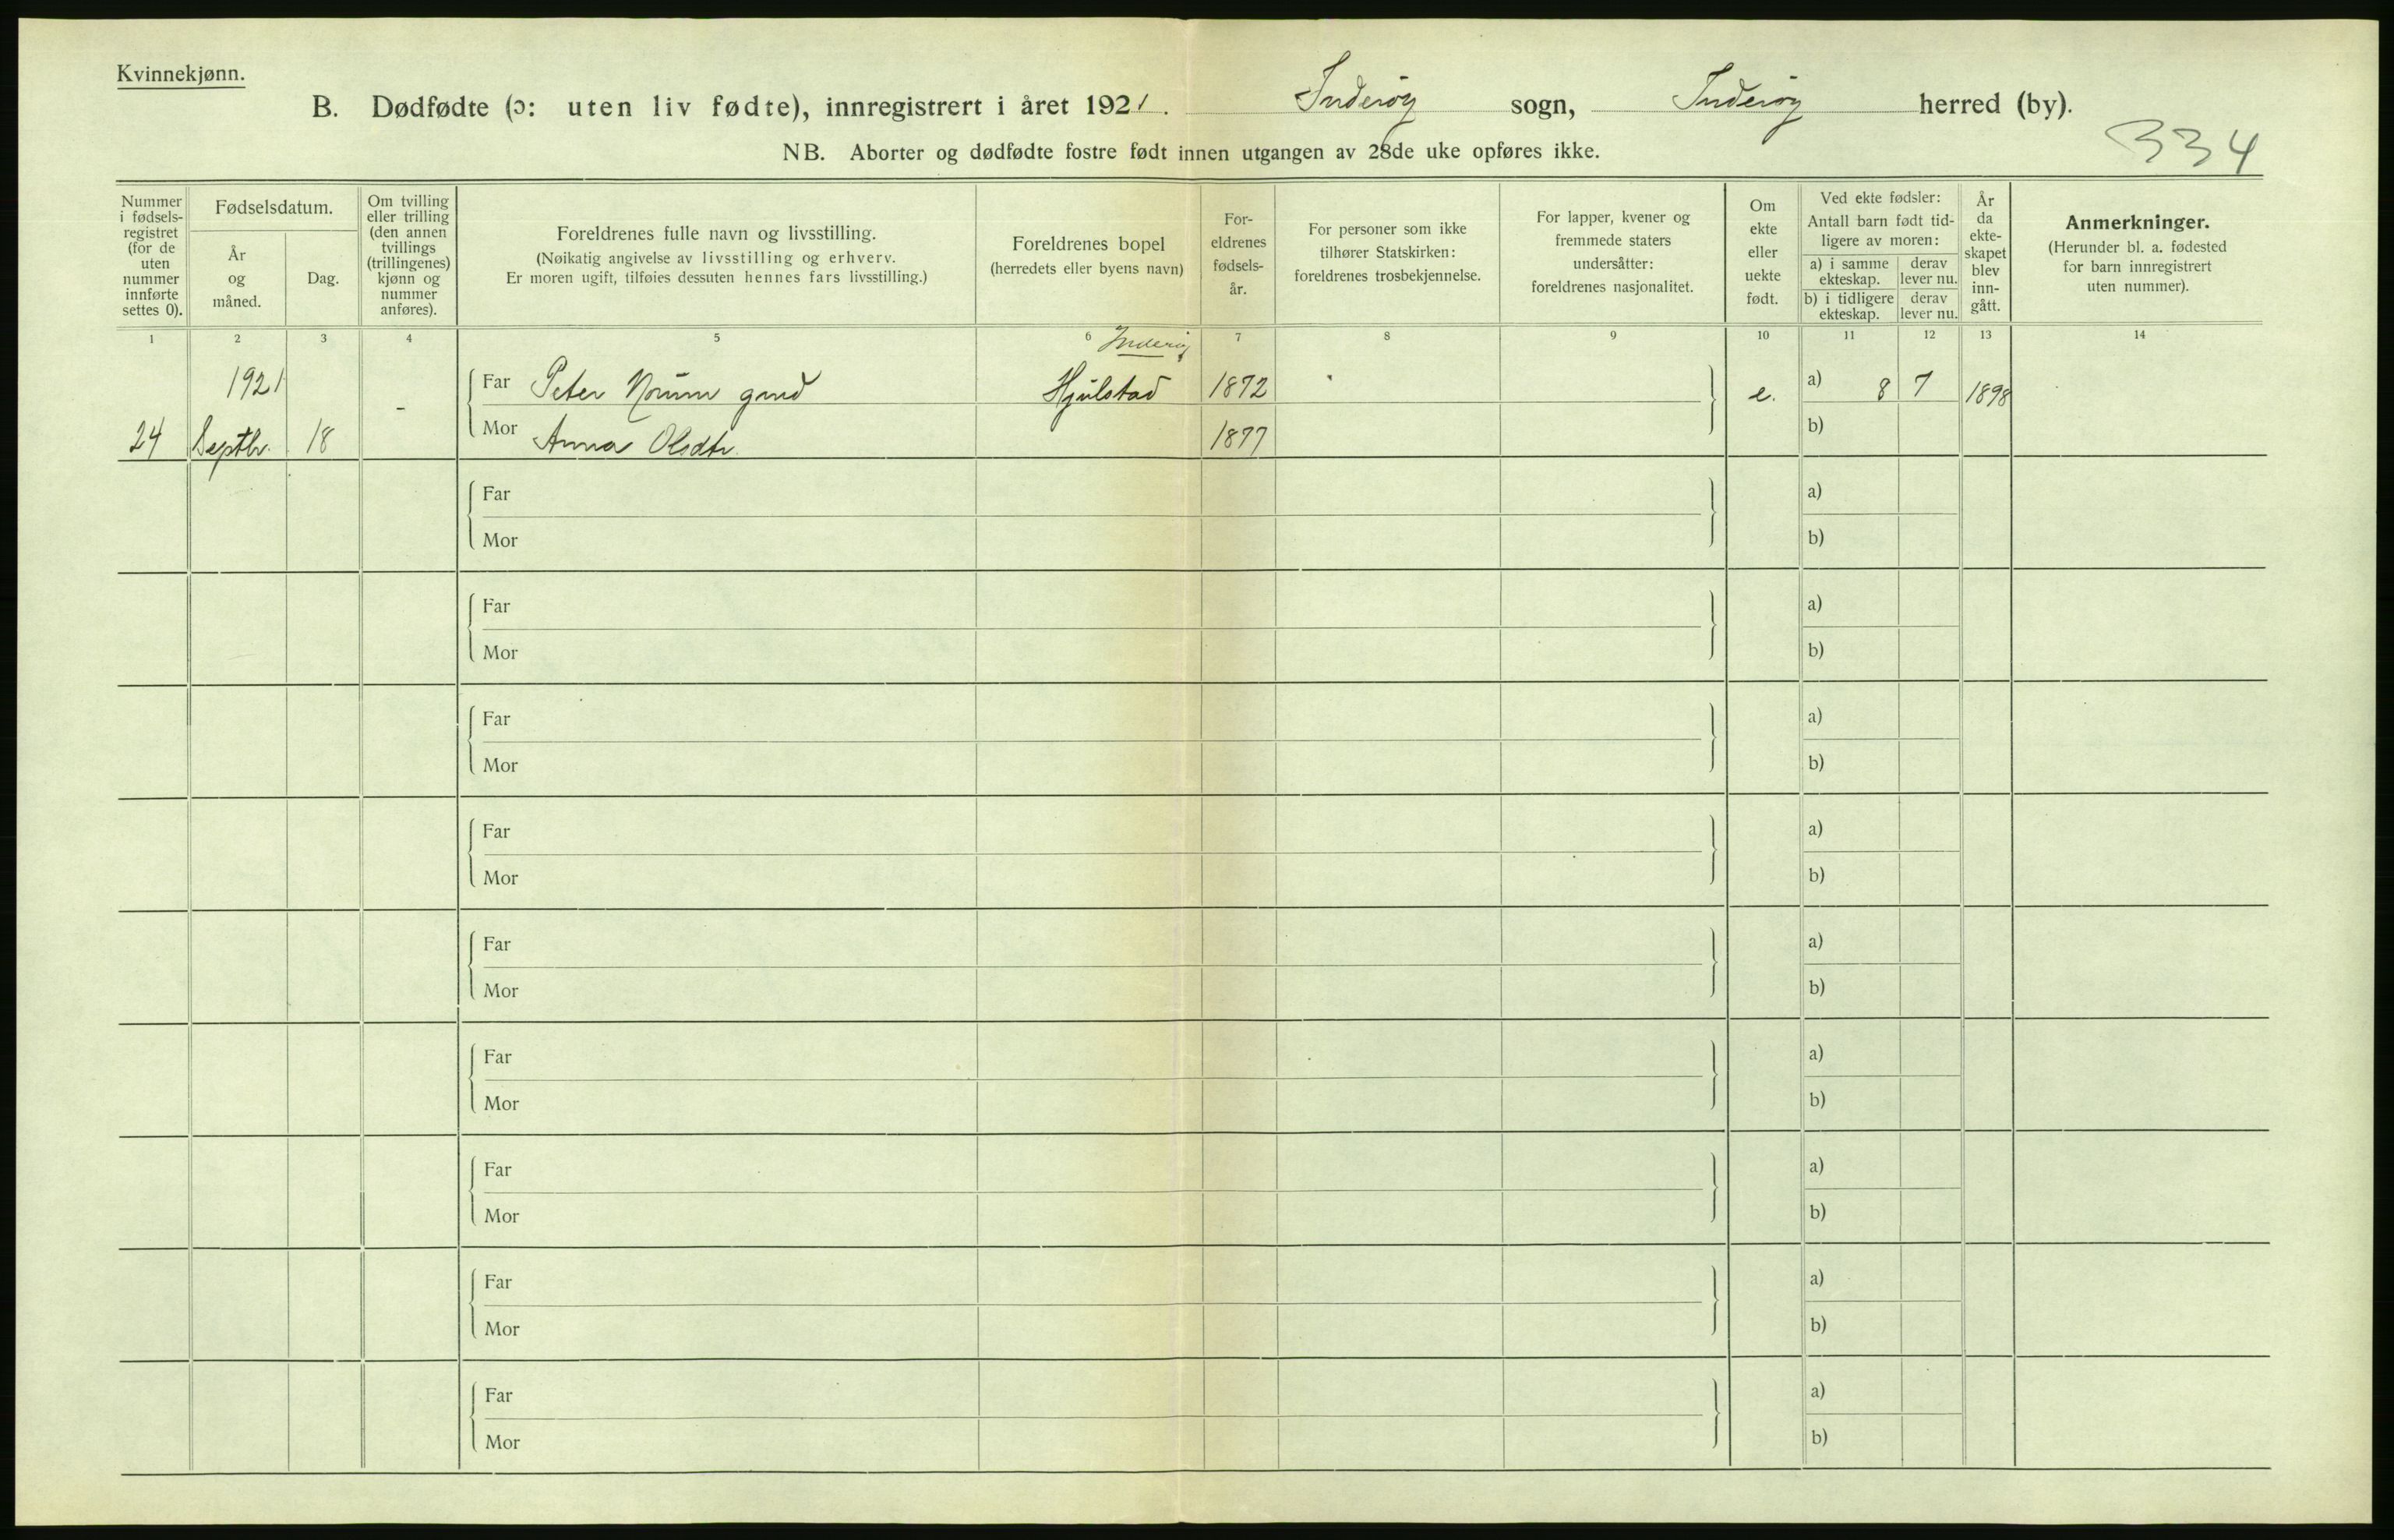 Kvinnekjønn.
B. Dødfødte (ɔ: uten liv fødte), innregistrert i året 1921. Inderøy sogn, Inderøy herred (by).
NB. Aborter og dødfødte fostre født innen utgangen av 28de uke opføres ikke.
334
Nummer
i fødsels-
registret
(for de
uten
nummer
innførte
settes 0).
Fødselsdatum.
År
og
måned.
Dag.
Om tvilling
eller trilling
(den annen
tvillings
(trillingenes)
kjønn og
nummer
anføres).
Foreldrenes fulle navn og livsstilling.
(Nøikatig angivelse av livsstilling og erhverv.
Er moren ugift, tilføies dessuten hennes fars livsstilling.)
Foreldrenes bopel
(herredets eller byens navn)
For-
eldrenes
fødsels-
år.
For personer som ikke
tilhører Statskirken:
foreldrenes trosbekjennelse.
For lapper, kvener og
fremmede staters
undersåtter:
foreldrenes nasjonalitet.
Om
ekte
eller
uekte
født.
Ved ekte fødsler:
Antall barn født tid-
ligere av moren:
a) i samme
ekteskap.
derav
lever nu.
b) i tidligere
ekteskap.
derav
lever nu.
År
da
ekte-
skapet
blev
inn-
gått.
Anmerkninger.
(Herunder bl. a. fødested
for barn innregistrert
uten nummer).
1 2 3 4 5 6 7 8 9 10 11 12 13 14
Inderøy
1921 - Far Peter Norum grud Hjulstad 1872 e. a) 8 7 1898
24 Septbr. 18 Mor Anna Olsdtr. 1877 b)
Far a)
Mor b)
Far a)
Mor b)
Far a)
Mor b)
Far a)
Mor b)
Far a)
Mor b)
Far a)
Mor b)
Far a)
Mor b)
Far a)
Mor b)
Far a)
Mor b)